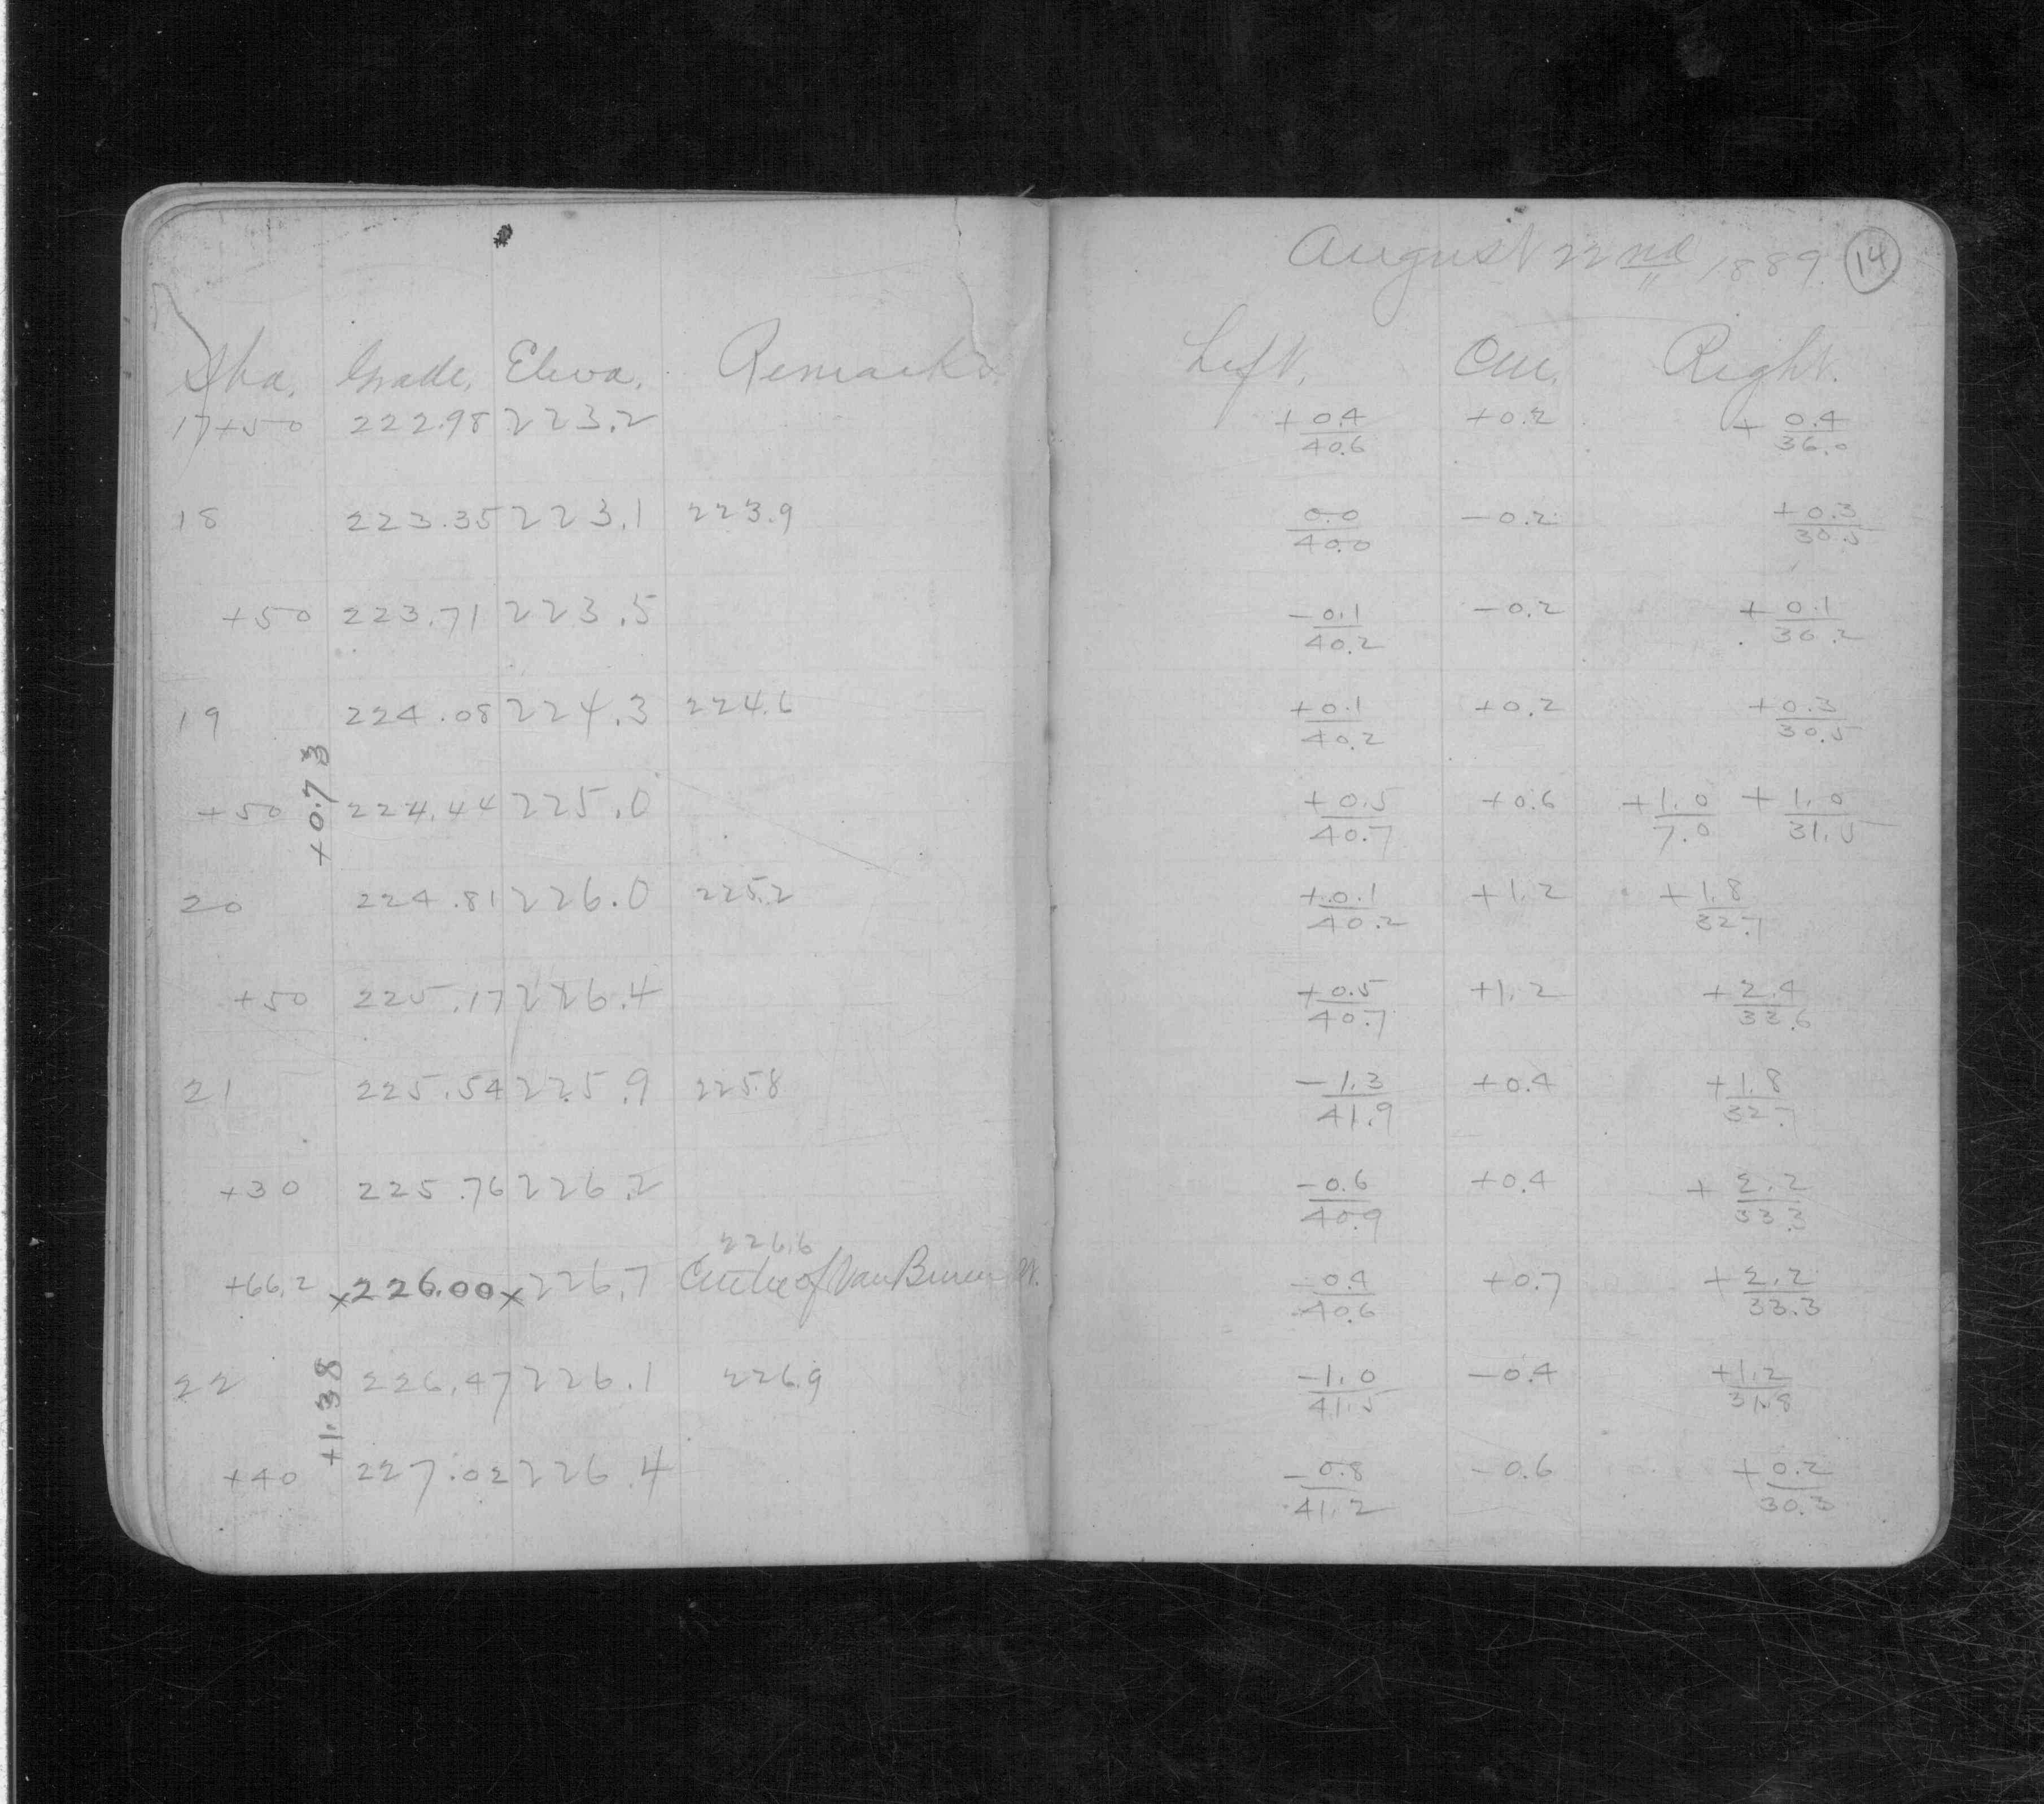 August 22nd 1889. 14
Sta. Grade. Eleva. Remarks Left. Cen. Right.
17+50 222.98 223.2 +0.4/40.6 +0.2 +0.4/36.0
18 223.35 223.1 223.9 0.0/40.0 -0.2 +0.3/30.5
+50 223.71 223.5 -0.1/40.2 -0.2 +0.1/30.2
19 224.08 224.3 224.6 +0.1/40.2 +0.2 +0.3/30.5
+0.73
+50 224.44 225.0 +0.5/40.7 +0.6 +1.0/7.0 +1.0/31.5
20 224.81 226.0 225.2 +0.1/40.2 +1.2 +1.8/32.7
+50 225.17 226.4 +0.5/40.7 +1.2 +2.4/33.6
21 225.54 225.9 225.8 -1.3/41.9 +0.4 +1.8/32.7
+30 225.76 226.2 -0.6/40.9 +0.4 +2.2/33.3
226.6
+66.2 x226.00x 226.7 Centre of Van Buren St. -0.4/40.6 +0.7 +2.2/33.3
22 226.47 226.1 226.9 -1.0/41.5 -0.4 +1.2/31.8
+1.38
+40 227.02 226.4 -0.8/41.2 -0.6 +0.2/30.3